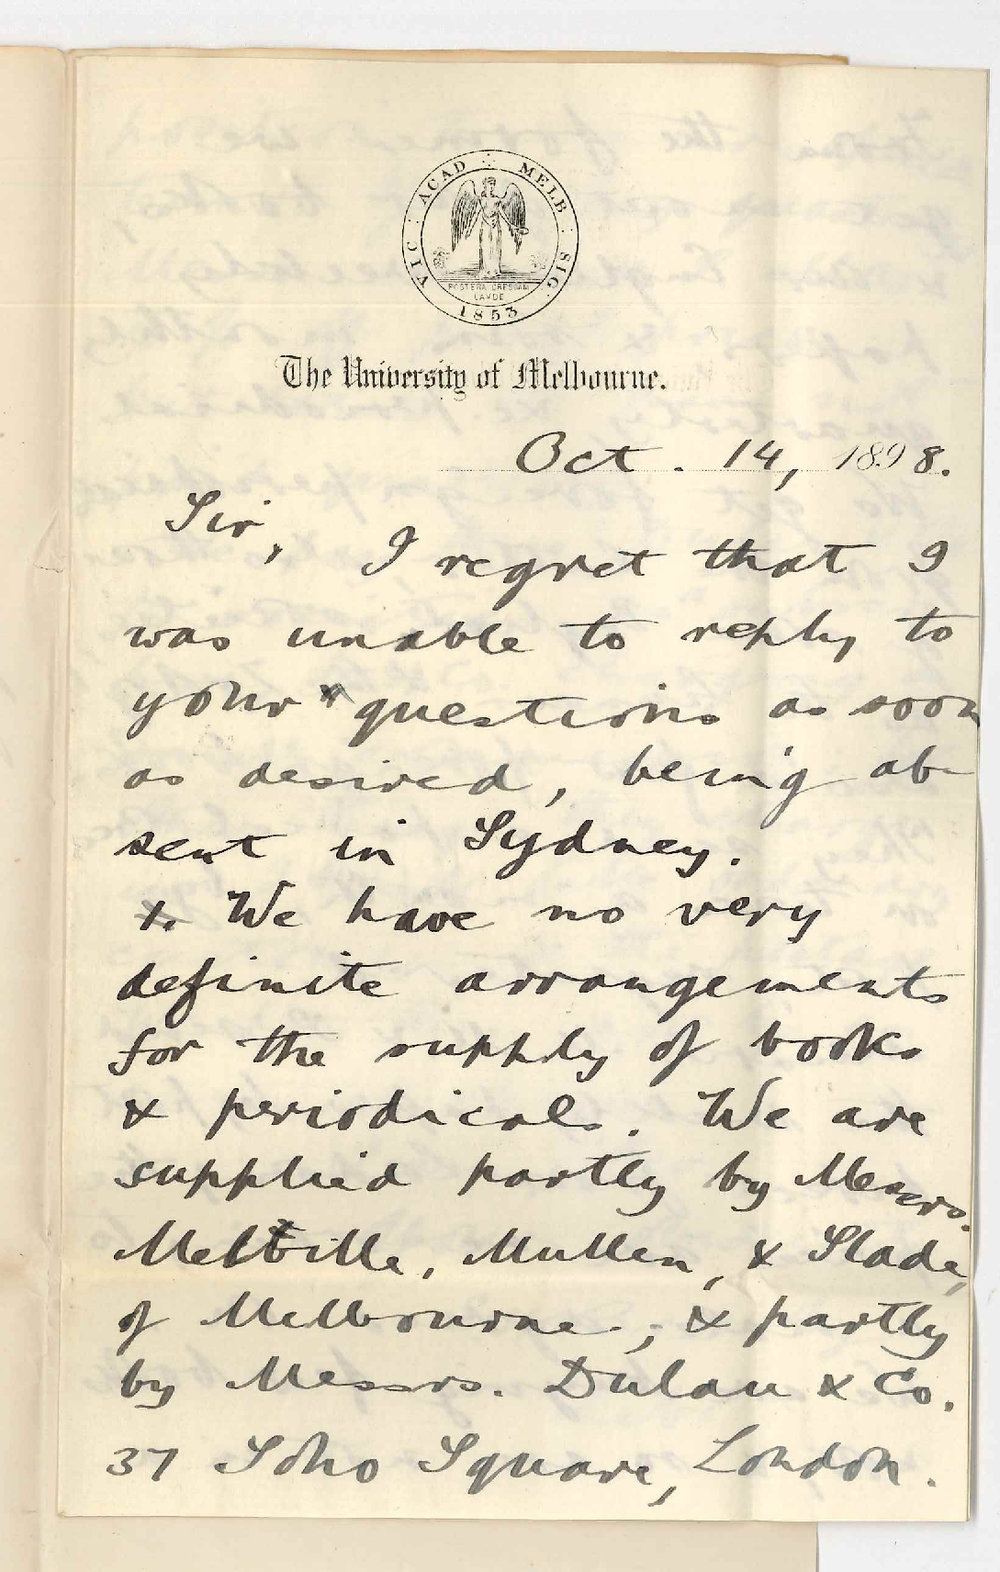 VIC : ACAD : MELB : SIG.
POSTERA CRESCAM
LAVDE
1853
The University of Melbourne.
Oct. 14, 1898.
Sir, I regret that I
was unable to reply to
your questions as soon
as desired, being ab-
sent in Sydney.
1. We have no very
definite arrangements
for the supply of books
& periodicals. We are
supplied partly by Messrs.
Melville, Mullen, & Slade,
of Melbourne; & partly
by Messrs. Dulau & Co.
37 Soho Square, London.